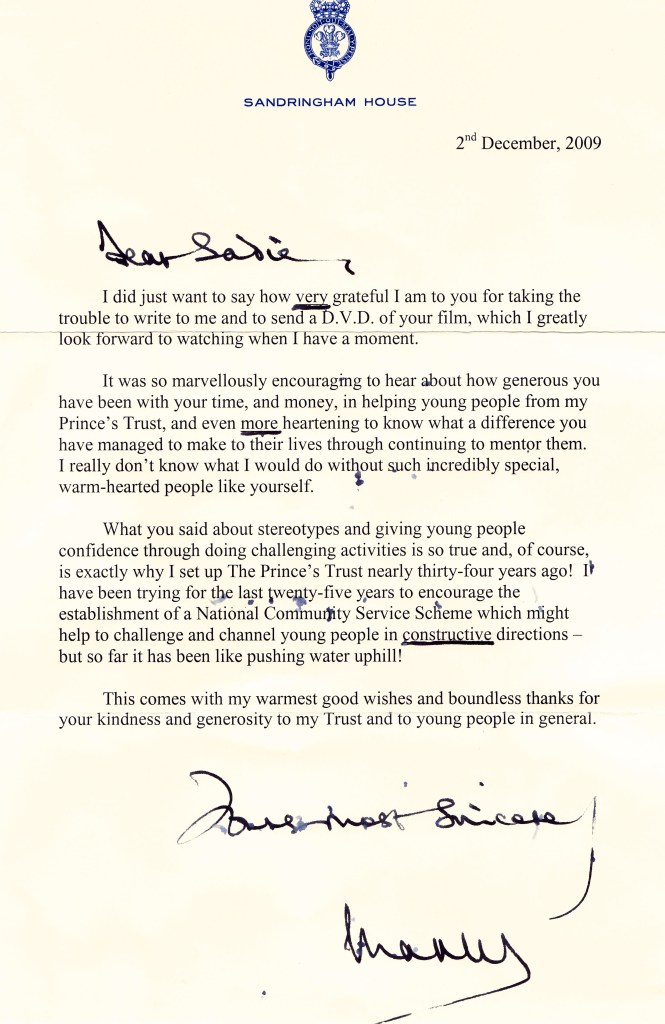 SANDRINGHAM HOUSE
2nd December, 2009
Dear Sadie,
I did just want to say how very grateful I am to you for taking the
trouble to write to me and to send a D.V.D. of your film, which I greatly
look forward to watching when I have a moment.
It was so marvellously encouraging to hear about how generous you
have been with your time, and money, in helping young people from my
Prince's Trust, and even more heartening to know what a difference you
have managed to make to their lives through continuing to mentor them.
I really don't know what I would do without such incredibly special,
warm-hearted people like yourself.
What you said about stereotypes and giving young people
confidence through doing challenging activities is so true and, of course,
is exactly why I set up The Prince's Trust nearly thirty-four years ago! I
have been trying for the last twenty-five years to encourage the
establishment of a National Community Service Scheme which might
help to challenge and channel young people in constructive directions –
but so far it has been like pushing water uphill!
This comes with my warmest good wishes and boundless thanks for
your kindness and generosity to my Trust and to young people in general.
Yours most sincerely